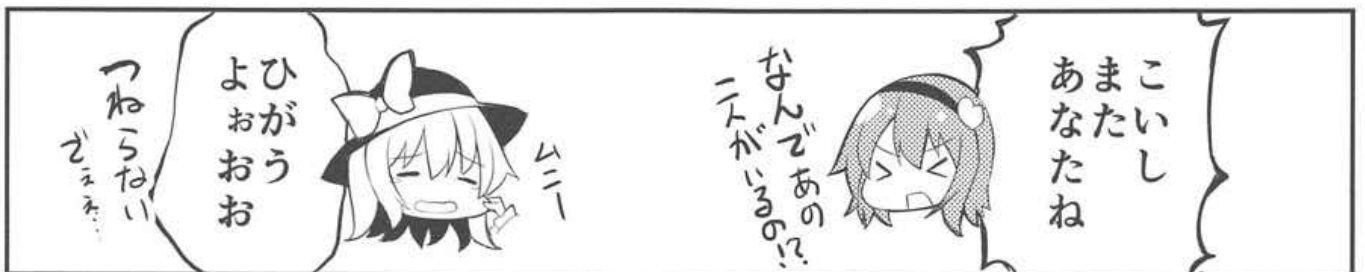 こいし
また
あなたね
なんであの
二人がいるの!?
ムニー
ひがう
よぉおお
つねらない
でぇぇ…